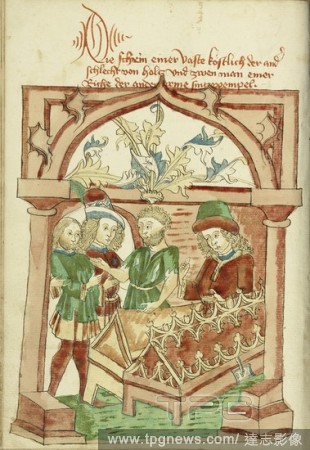 Die schrein einer vaste kostlich der and'
schlecht von holtz vnd zwen man einer
Riche der ander arme sin exempel.
TPG
www.tpgnews.com/達志影像